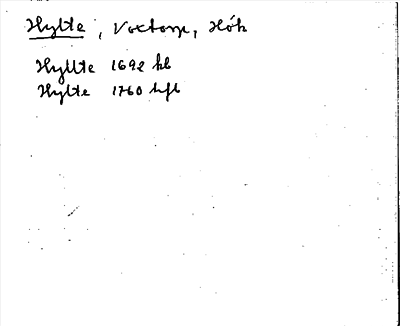 Hylte, Voxtorp, Hök
Hyllte 1692 kb
Hylte 1760 hfl